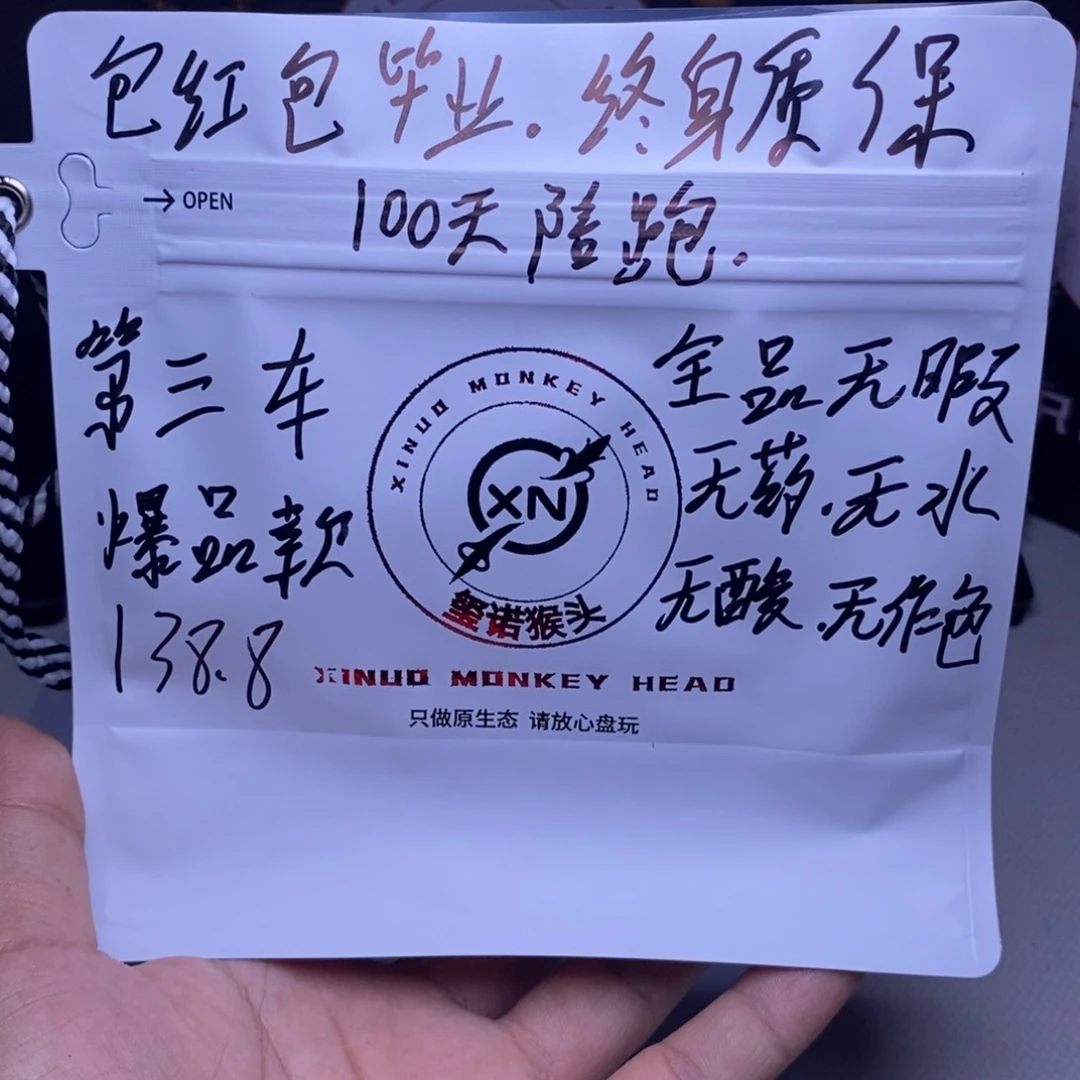 包红包毕业.终身质保
→ OPEN
100天陪跑.
第三车
爆品款
138.8
全品无暇
无药.无水
无酸.无作色
XINUO MONKEY HEAD
XN
玺诺猴头
XINUO MONKEY HEAD
只做原生态 请放心盘玩